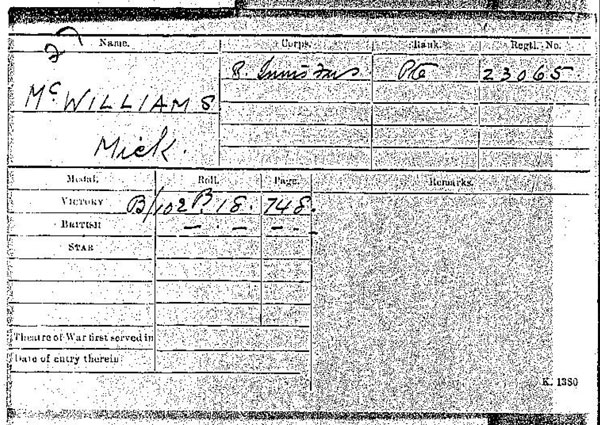 27
Name. Corps. Rank. Regtl. No.
R. Innis Fus Pte 23065.
McWILLIAMS
Mick.
Medal. Roll. Page. Remarks.
VICTORY B/102 B. 18. 748.
BRITISH — . — — . —
STAR
Theatre of War first served in
Date of entry therein
K. 1380